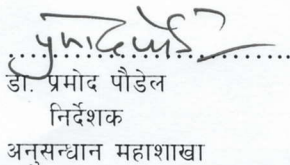 डा. प्रमोद पौडेल
निर्देशक
अनुसन्धान महाशाखा